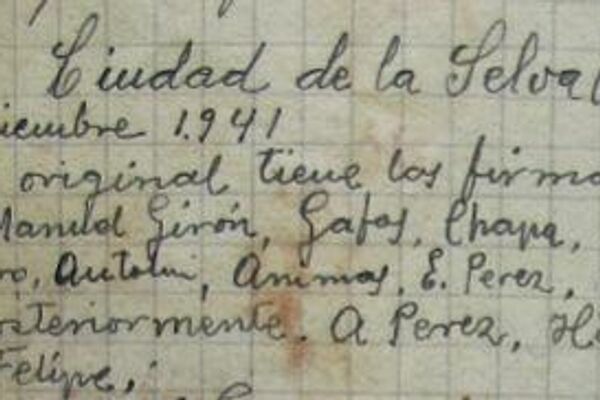 Ciudad de la Selva
iciembre 1.941
original tiene las firma
Manuel Girón, Gafas, Chapa,
ro, Antolin, Animas, E. Perez,
osteriormente. A Perez, H
Felipe,